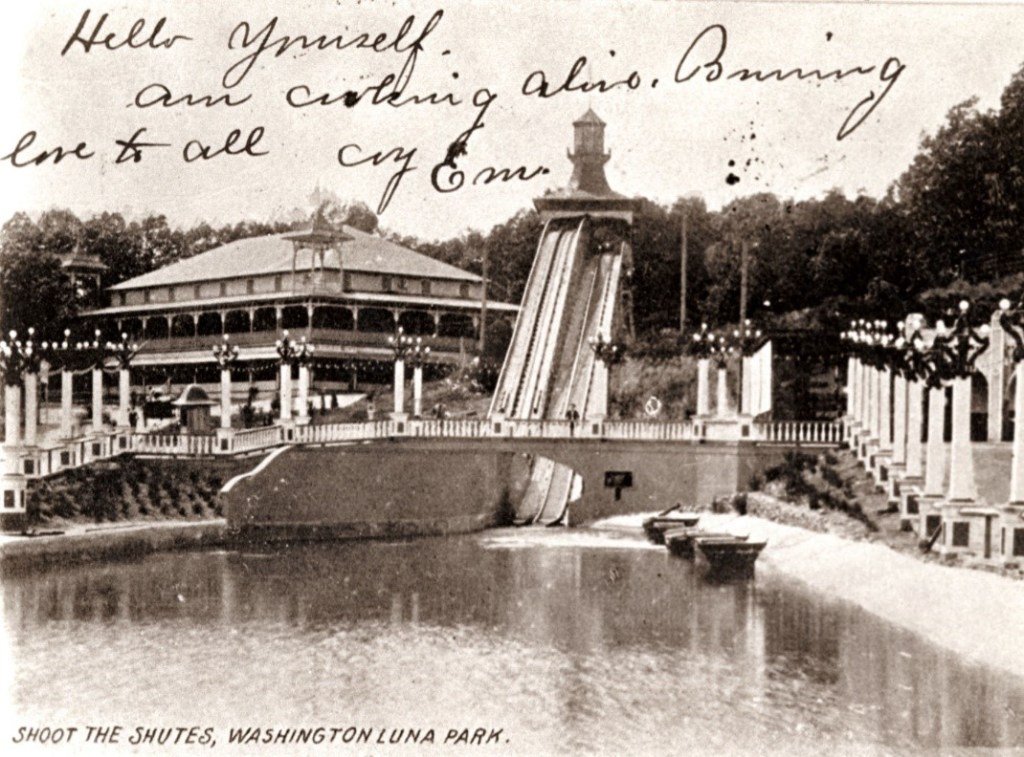 Hello Yourself.
am cooking alive. Burning
love to all Em.
SHOOT THE SHUTES, WASHINGTON LUNA PARK.